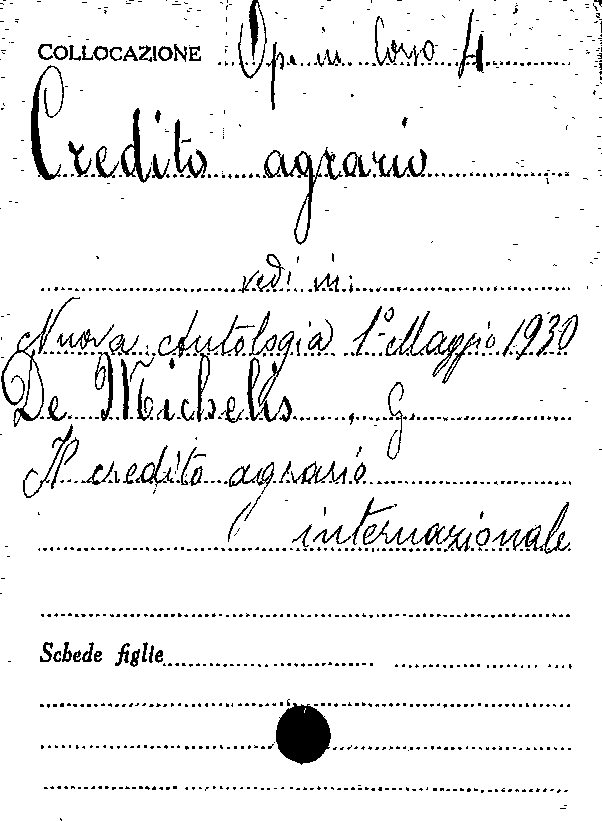 COLLOCAZIONE Op. in Corso 4
Credito agrario
vedi in:
Nuova Antologia 1º Maggio 1930
De Michelis, G.
Il credito agrario
internazionale
Schede figlie